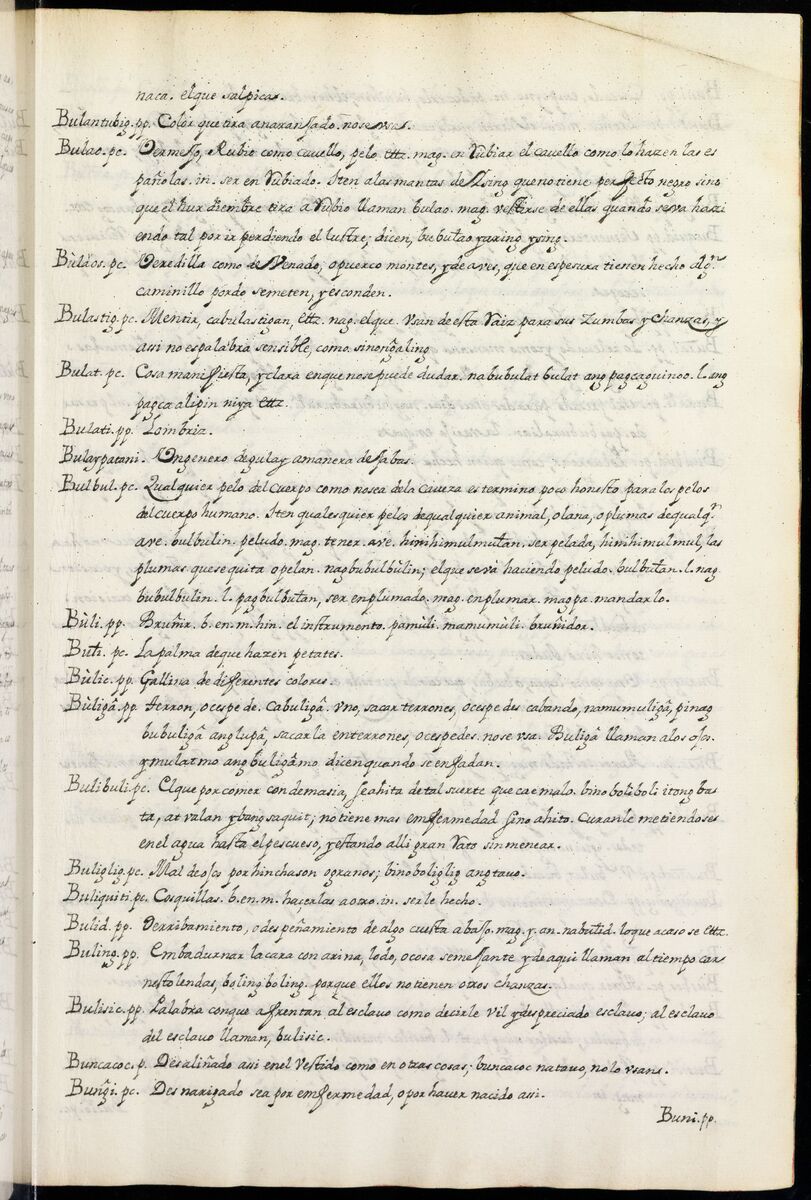 naca. el que salpica.
Bulantubig. pp. Color que tira anaransado. nose usa.
Bulao. pc. Vermejo, Rubio como cavello, pelo ettz. mag. en rubiar el cavello como lo hazen las es
pañolas. in. ser en rubiado. Iten alas mantas de Ilsing que no tiene perfecto negro sino
que el hurdiembre tira a rubio llaman bulao. mag. vestirse de ellas quando se va hazi
endo tal por ir perdiendo el lustre; dicen, bubulao yaring ysing.
Bùlàos. pc. Veredilla como de Venado; o puerco montes, y de aves, que en espesura tienen hecho alg.ⁿ
caminillo pordo semeten, y esconden.
Bulastig. pc. Mentir, cabulastigan, ettz. nag. el que. usan de esta raiz para sus zumbas y chanzas, y
assi no es palabra sensible, como sinongaling
Bulat. pc. Cosa manifiesta, y clara en que nose puede dudar. nabubulat bulat ang pagcaguinoo. l. ang
pagca alipin niya ettz.
Bulati. pp. Lombriz.
Bulaypatani. Un genero de gulay a manera de fabas.
Bulbul. pc. Qualquier pelo del cuerpo como nosea de la caveza es termino poco honesto para los pelos
del cuerpo humano. Iten qualesquier pelos de qualquier animal, o lana, o plumas de qualq.ʳ
ave. bulbulin. peludo. mag. tener. ave. himhimulmulan. ser pelada, himhimulmul, las
plumas que se quita o pelan. nagbubulbùlin; el que se và haciendo peludo. bulbulan. l. nag
bubulbulin. l. pagbulbulan, ser enplumado. mag. enplumar. magpa. mandarlo.
Bùli. pp. Bruñir. b. en. m. hin. el instrumento. pamùli. mamumùli. bruñidor.
Buli. pc. La palma de que hazen petates.
Bùlic. pp. Gallina de differentes colores.
Bùligâ. pp. Terron, o cespede. Cabuligâ. uno, sacar terrones, o cespedes cabando, namumuligâ, pinag
bubuligâ ang lupâ, sacarla enterrones, o cespedes. nose usa. Buligâ llaman a los ojos.
y mulatmo ang buligâmo dicen quando se enfadan.
Bulibuli. pc. El que por comer con demasia, se ahita de tal suerte que cae malo. binoboliboli itong ba
ta, at valan ybang saquit; no tiene mas emfermedad sino ahito. Curanle metiendose
en el agua hasta el pescueso, y estando alli gran rato sin menear.
Buliglig. pc. Mal de ojos por hinchason o granos; binobigliglig ang tauo.
Buliquiti. pc. Cosquillas. b. en. m. haçerlas a otro. in. serle hecho.
Bulid. pp. Derribamiento, o despeñamiento de algo cuesta abaso. mag. y. an. nabulid. lo que acaso se ettz.
Buling. pp. Embadurnar la cara con arina, lodo, o cosa semejante y de aqui llaman al tiempo car
nestolendas, boling boling. porque ellos no tienen otros chanzas.
Bulisic. pp. Palabra conque afrentan al esclavo como decirle vil y despreciado esclavo; al esclavo
del esclavo llaman, bulisic.
Buncacoc. p. Desaliñado assi en el vestido como en otras cosas; buncacoc na tavo, no lo usans.
Bungi. pc. Desnarigado sea por emfermedad, o por haver nacido assi.
Buni. pp.